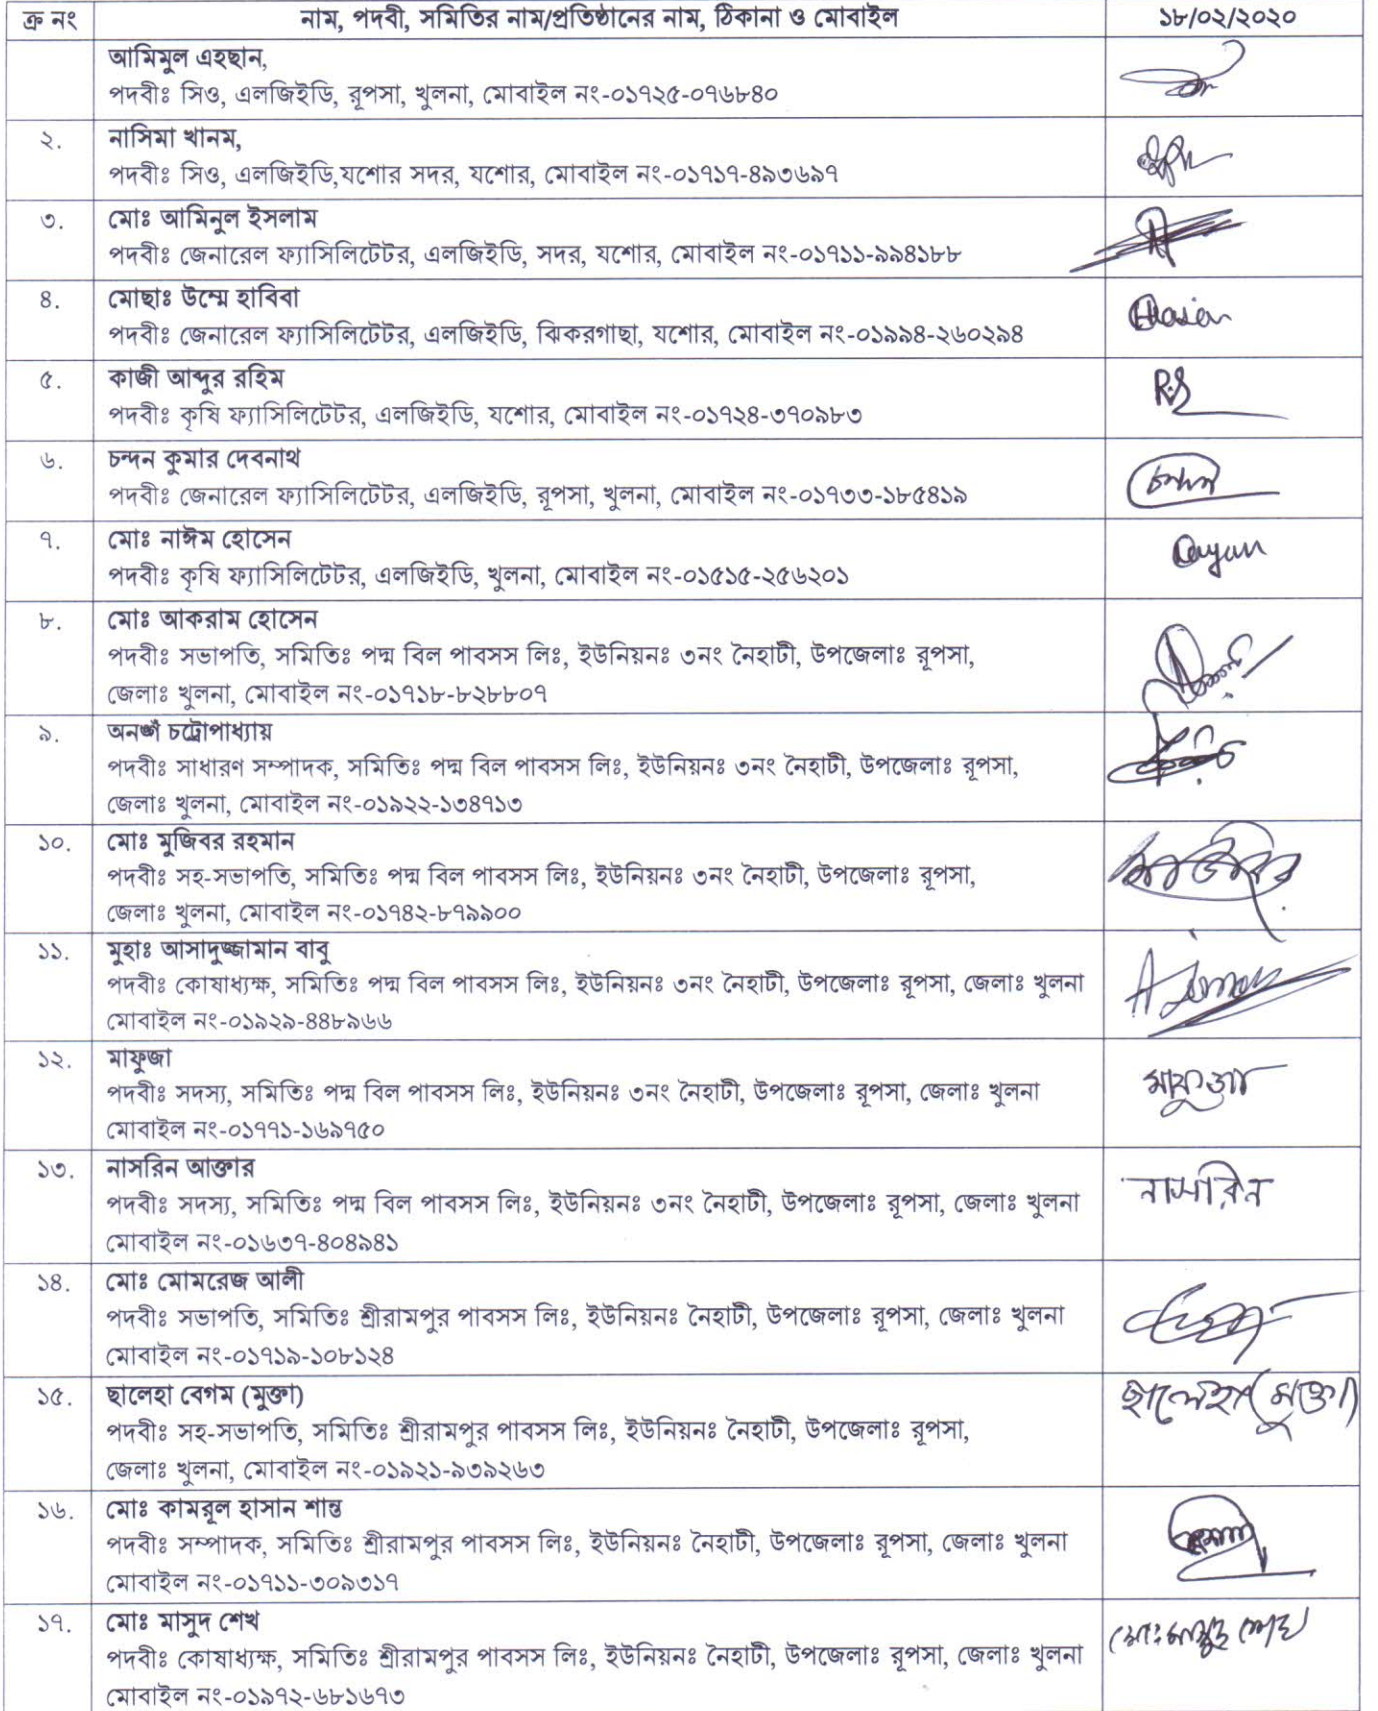 ক্র নং নাম, পদবী, সমিতির নাম/প্রতিষ্ঠানের নাম, ঠিকানা ও মোবাইল ১৮/০২/২০২০
আমিমুল এহছান,
পদবীঃ সিও, এলজিইডি, রূপসা, খুলনা, মোবাইল নং-০১৭২৫-০৭৬৮৪০
২. নাসিমা খানম,
পদবীঃ সিও, এলজিইডি,যশোর সদর, যশোর, মোবাইল নং-০১৭১৭-৪৯৩৬৯৭
৩. মোঃ আমিনুল ইসলাম
পদবীঃ জেনারেল ফ্যাসিলিটেটর, এলজিইডি, সদর, যশোর, মোবাইল নং-০১৭১১-৯৯৪১৮৮
৪. মোছাঃ উম্মে হাবিবা
পদবীঃ জেনারেল ফ্যাসিলিটেটর, এলজিইডি, ঝিকরগাছা, যশোর, মোবাইল নং-০১৯৯৪-২৬০২৯৪
৫. কাজী আব্দুর রহিম
পদবীঃ কৃষি ফ্যাসিলিটেটর, এলজিইডি, যশোর, মোবাইল নং-০১৭২৪-৩৭০৯৮৩
৬. চন্দন কুমার দেবনাথ
পদবীঃ জেনারেল ফ্যাসিলিটেটর, এলজিইডি, রূপসা, খুলনা, মোবাইল নং-০১৭৩৩-১৮৫৪১৯
৭. মোঃ নাঈম হোসেন
পদবীঃ কৃষি ফ্যাসিলিটেটর, এলজিইডি, খুলনা, মোবাইল নং-০১৫১৫-২৫৬২০১
৮. মোঃ আকরাম হোসেন
পদবীঃ সভাপতি, সমিতিঃ পদ্ম বিল পাবসস লিঃ, ইউনিয়নঃ ৩নং নৈহাটী, উপজেলাঃ রূপসা,
জেলাঃ খুলনা, মোবাইল নং-০১৭১৮-৮২৮৮০৭
৯. অনঙ্গঁ চট্টোপাধ্যায়
পদবীঃ সাধারণ সম্পাদক, সমিতিঃ পদ্ম বিল পাবসস লিঃ, ইউনিয়নঃ ৩নং নৈহাটী, উপজেলাঃ রূপসা,
জেলাঃ খুলনা, মোবাইল নং-০১৯২২-১৩৪৭১৩
১০. মোঃ মুজিবর রহমান
পদবীঃ সহ-সভাপতি, সমিতিঃ পদ্ম বিল পাবসস লিঃ, ইউনিয়নঃ ৩নং নৈহাটী, উপজেলাঃ রূপসা,
জেলাঃ খুলনা, মোবাইল নং-০১৭৪২-৮৭৯৯০০
১১. মুহাঃ আসাদুজ্জামান বাবু
পদবীঃ কোষাধ্যক্ষ, সমিতিঃ পদ্ম বিল পাবসস লিঃ, ইউনিয়নঃ ৩নং নৈহাটী, উপজেলাঃ রূপসা, জেলাঃ খুলনা
মোবাইল নং-০১৯২৯-৪৪৮৯৬৬
১২. মাফুজা মাফুজা
পদবীঃ সদস্য, সমিতিঃ পদ্ম বিল পাবসস লিঃ, ইউনিয়নঃ ৩নং নৈহাটী, উপজেলাঃ রূপসা, জেলাঃ খুলনা
মোবাইল নং-০১৭৭১-১৬৯৭৫০
১৩. নাসরিন আক্তার নাসরিন
পদবীঃ সদস্য, সমিতিঃ পদ্ম বিল পাবসস লিঃ, ইউনিয়নঃ ৩নং নৈহাটী, উপজেলাঃ রূপসা, জেলাঃ খুলনা
মোবাইল নং-০১৬৩৭-৪০৪৯৪১
১৪. মোঃ মোমরেজ আলী
পদবীঃ সভাপতি, সমিতিঃ শ্রীরামপুর পাবসস লিঃ, ইউনিয়নঃ নৈহাটী, উপজেলাঃ রূপসা, জেলাঃ খুলনা
মোবাইল নং-০১৭১৯-১০৮১২৪
১৫. ছালেহা বেগম (মুক্তা) ছালেহা (মুক্তা)
পদবীঃ সহ-সভাপতি, সমিতিঃ শ্রীরামপুর পাবসস লিঃ, ইউনিয়নঃ নৈহাটী, উপজেলাঃ রূপসা,
জেলাঃ খুলনা, মোবাইল নং-০১৯২১-৯৩৯২৬৩
১৬. মোঃ কামরূল হাসান শান্ত
পদবীঃ সম্পাদক, সমিতিঃ শ্রীরামপুর পাবসস লিঃ, ইউনিয়নঃ নৈহাটী, উপজেলাঃ রূপসা, জেলাঃ খুলনা
মোবাইল নং-০১৭১১-৩০৯৩১৭
১৭. মোঃ মাসুদ শেখ মোঃ মাসুদ শেখ
পদবীঃ কোষাধ্যক্ষ, সমিতিঃ শ্রীরামপুর পাবসস লিঃ, ইউনিয়নঃ নৈহাটী, উপজেলাঃ রূপসা, জেলাঃ খুলনা
মোবাইল নং-০১৯৭২-৬৮১৬৭৩